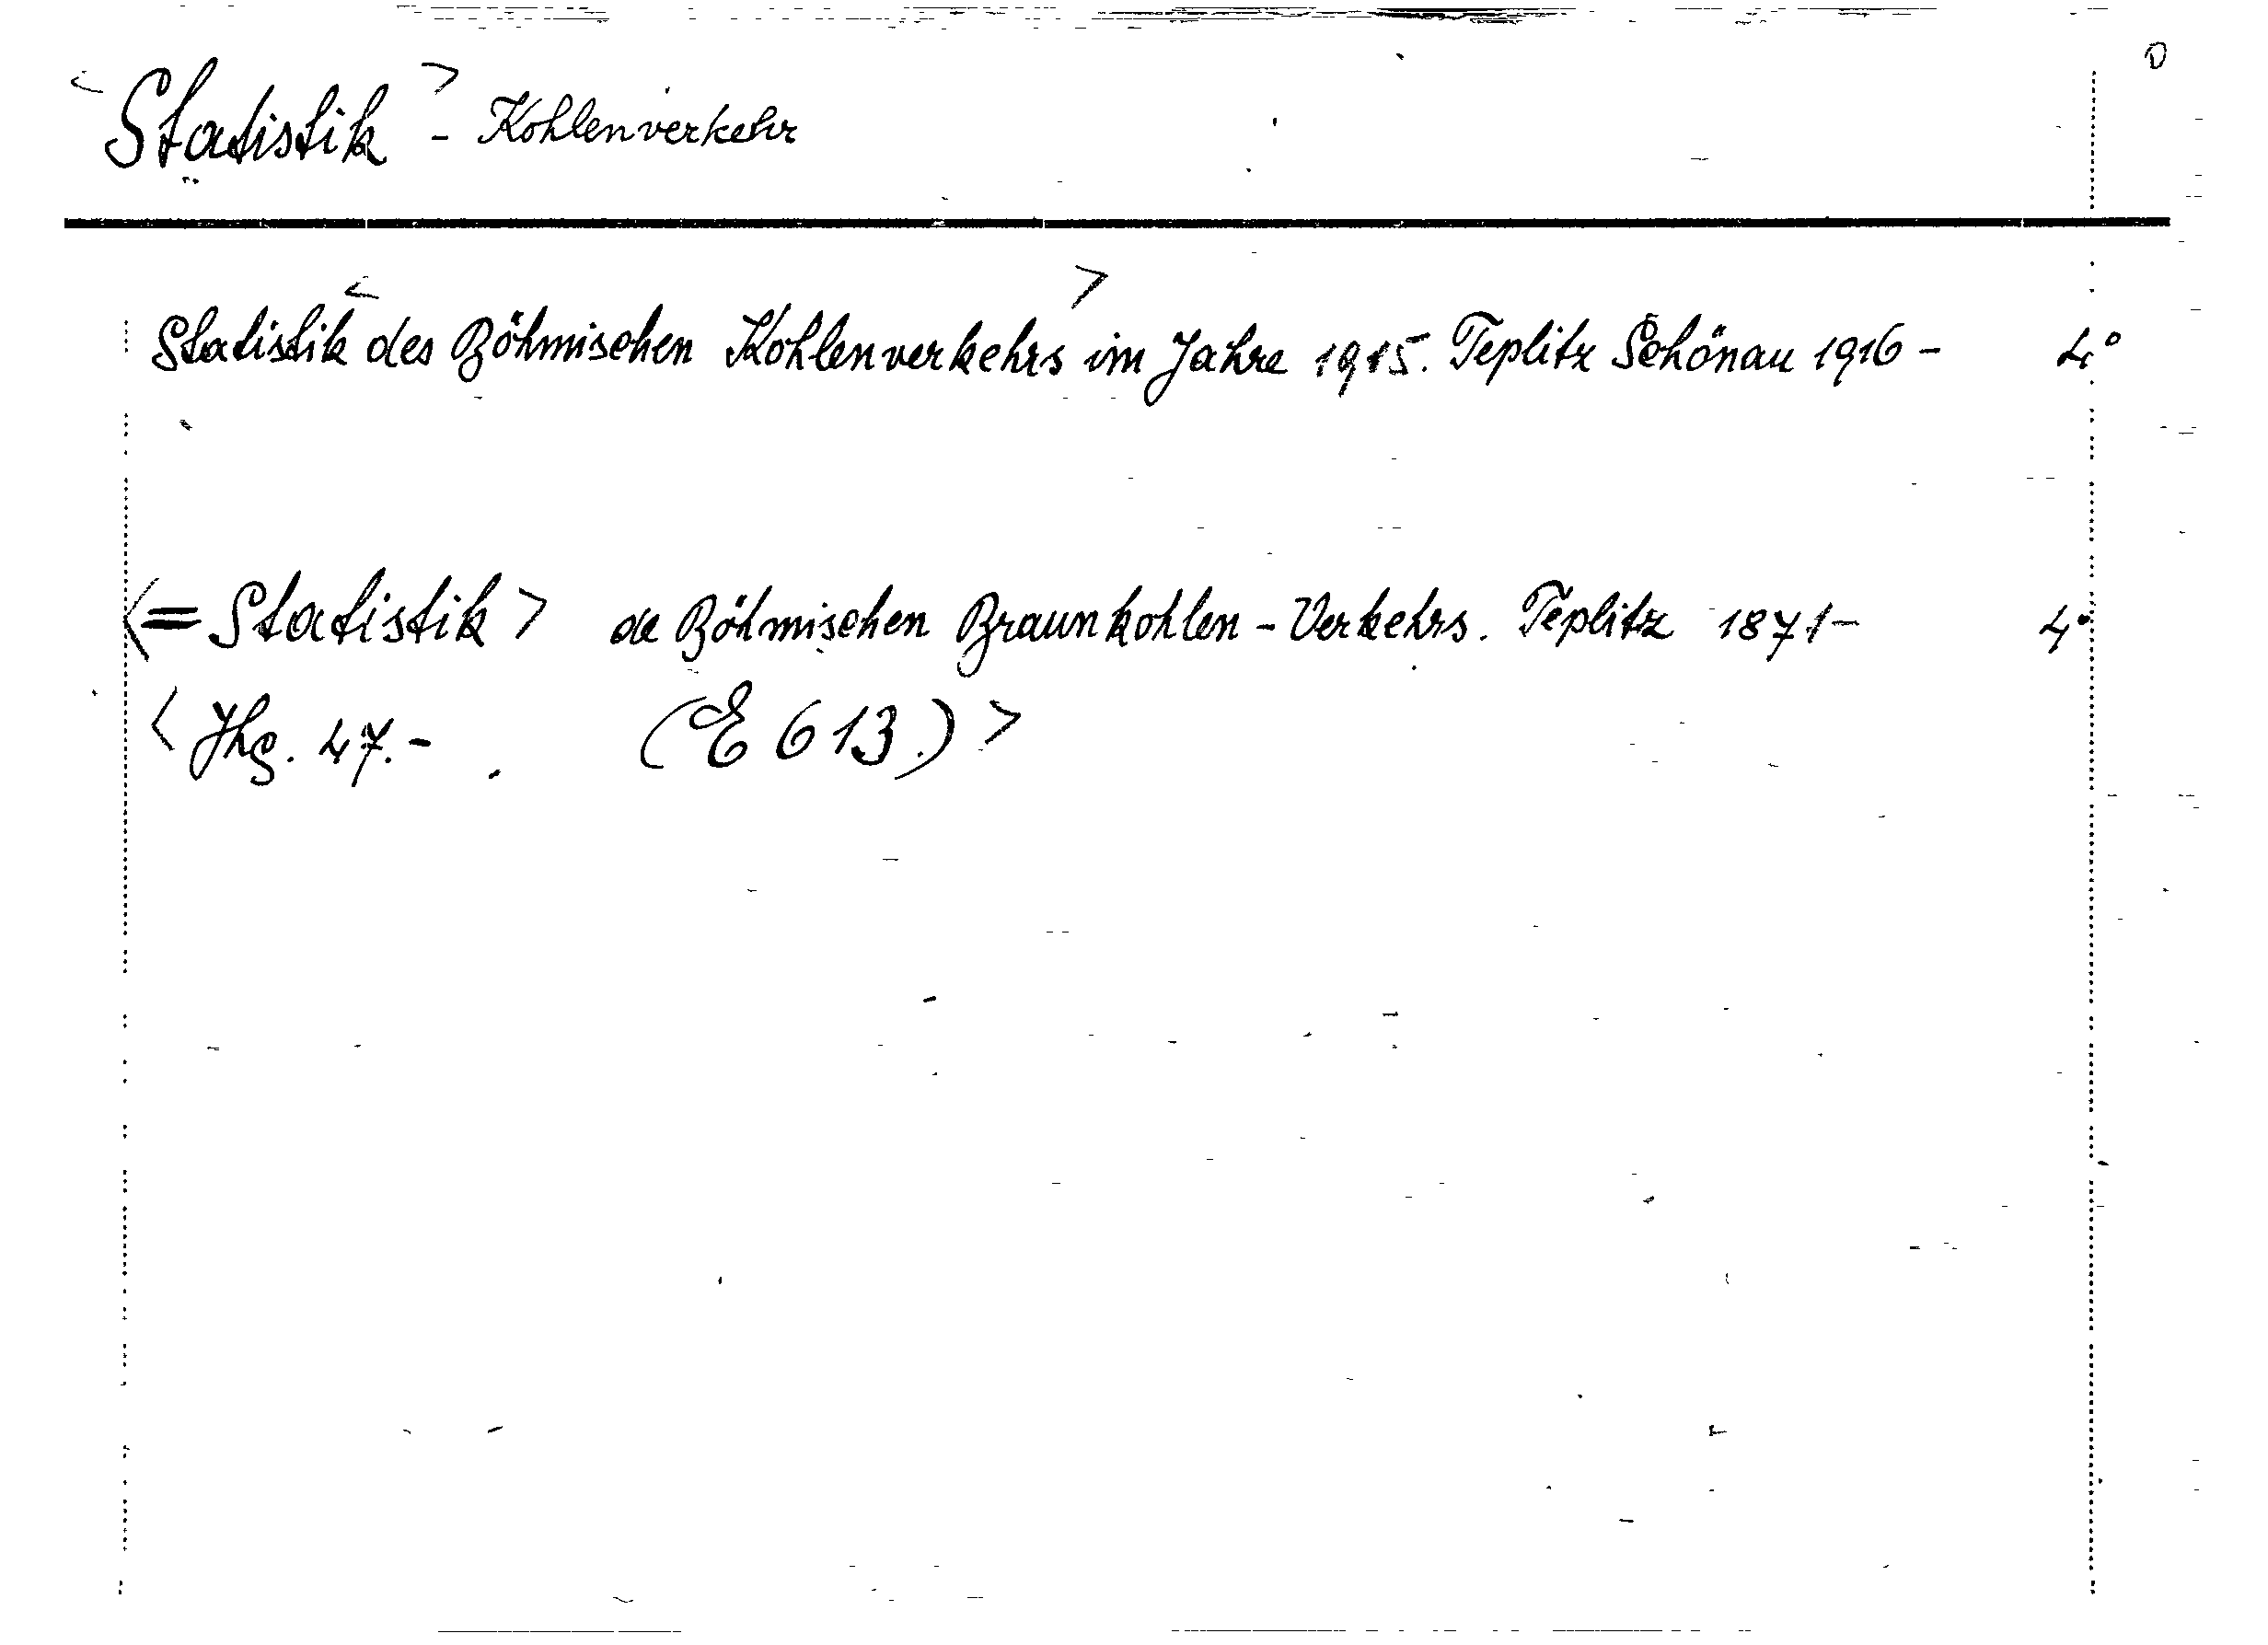 <Statistik> - Kohlenverkehr
Statistik <des Böhmischen Kohlenverkehrs> im Jahre 1915. Teplitz Schönau 1916 - 4°
<= Statistik> de Böhmischen Braunkohlen - Verkehrs. Teplitz 1871 - 4°
<Jhg. 47. - (E 613.)>